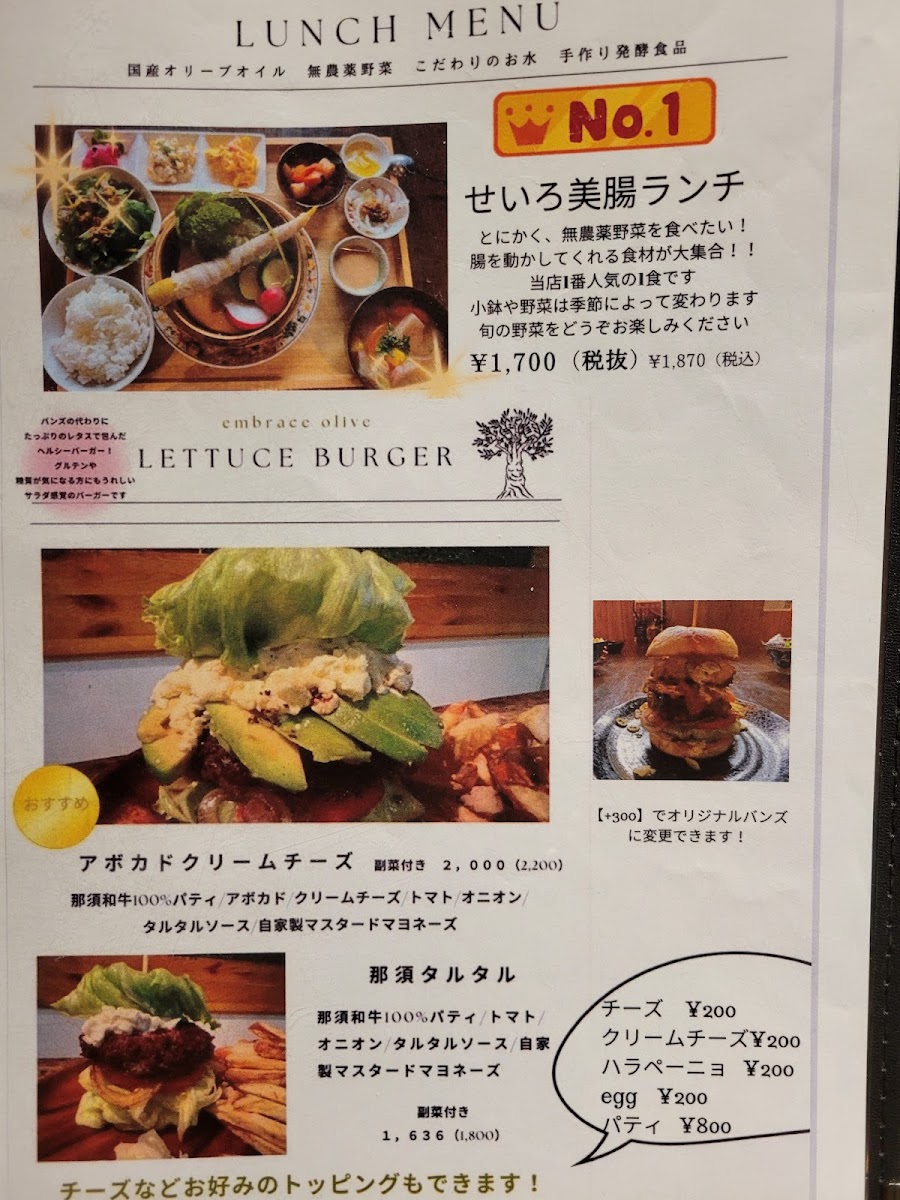 LUNCH MENU
国産オリーブオイル　無農薬野菜　こだわりのお水　手作り発酵食品
No.1
せいろ美腸ランチ
とにかく、無農薬野菜を食べたい！
腸を動かしてくれる食材が大集合！！
当店1番人気の1食です
小鉢や野菜は季節によって変わります
旬の野菜をどうぞお楽しみください
¥1,700（税抜）¥1,870（税込）
バンズの代わりに
たっぷりのレタスで包んだ
ヘルシーバーガー！
グルテンや
糖質が気になる方にもうれしい
サラダ感覚のバーガーです
embrace olive
LETTUCE BURGER
おすすめ
【+300】でオリジナルバンズ
に変更できます！
アボカドクリームチーズ　副菜付き　2,000（2,200）
那須和牛100%パティ/アボカド/クリームチーズ/トマト/オニオン/
タルタルソース/自家製マスタードマヨネーズ
那須タルタル
那須和牛100%パティ/トマト/
オニオン/タルタルソース/自家
製マスタードマヨネーズ
副菜付き
1,636（1,800）
チーズ　¥200
クリームチーズ¥200
ハラペーニョ　¥200
egg　¥200
パティ　¥800
チーズなどお好みのトッピングもできます！